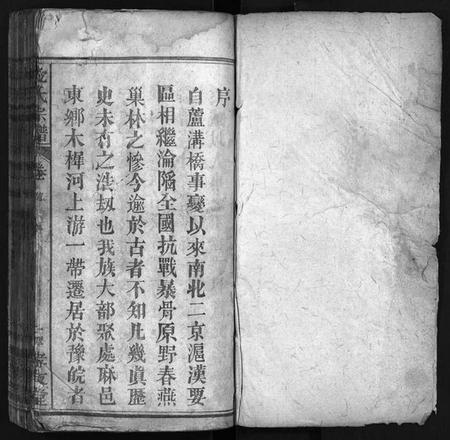 序
自蘆溝橋事變以來南北二京滬漢要
區相繼淪陷全國抗戰暴骨原野春燕
巢林之慘今逾於古者不知凡幾眞歷
史未有之浩刼也我族大部聚處麻邑
東鄉木樨河上游一帶遷居於豫皖者
氏宗譜 卷